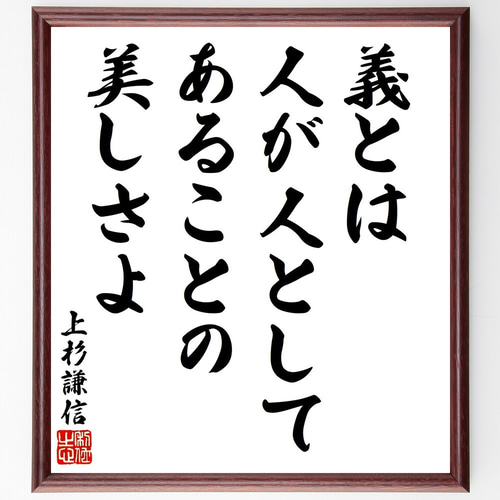 義とは
人が人として
あることの
美しさよ
上杉謙信